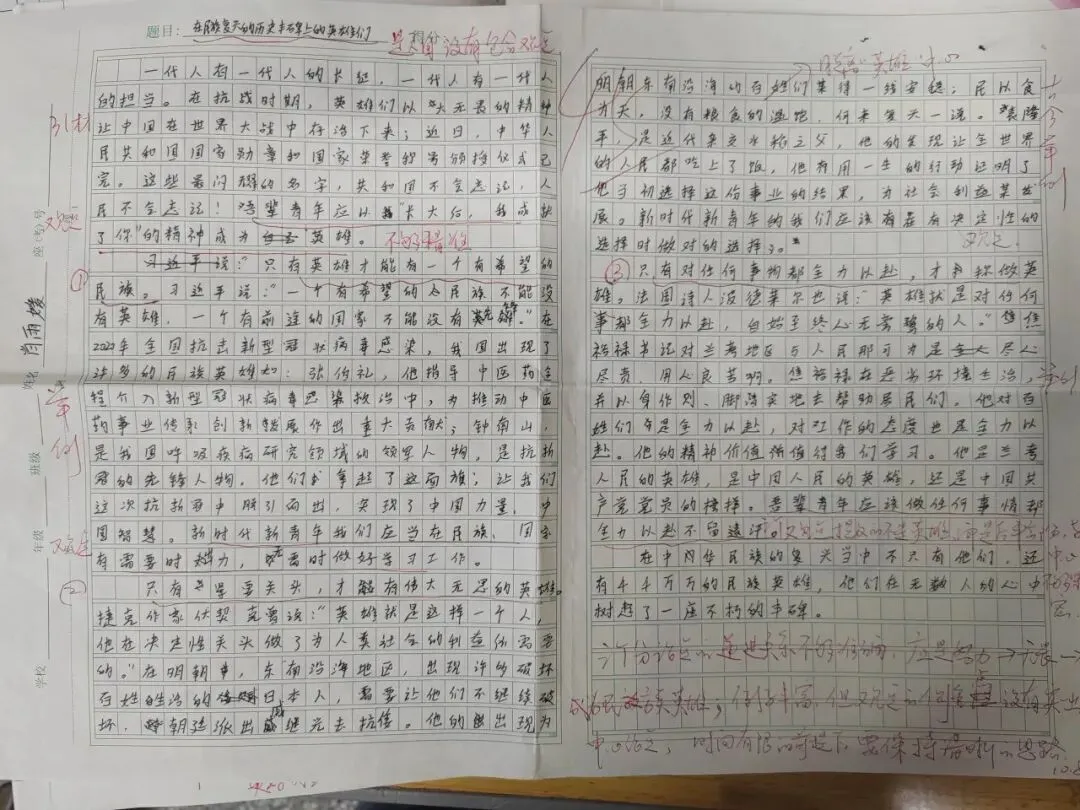 题目：在民族复兴的历史丰碑上的英雄们
是 没有包含观点
一代人有一代人的长征，一代人有一代人
的担当。在抗战时期，英雄们以大无畏的精神
让中国在世界大战中存活下来；近日，中华人
民共和国国家勋章和国家荣誉称号颁授仪式已
完。这些最闪耀的名字，共和国不会忘记，人
民不会忘记！吾辈青年应以"长大后，我成就
了你"的精神成为英雄。
引材
观点
不够准
习近平说："只有英雄才能有一个有希望的
民族。习近平说："一个有希望的民族不能没
有英雄，一个有前途的国家不能没有先锋。"在
2020年全国抗击新型冠状病毒感染，我国出现了
许多的民族英雄如：张伯礼，他指导中医药全
程介入新型冠状病毒感染救治中，为推动中医
药事业传承创新发展作出重大贡献；钟南山，
是我国呼吸疾病研究领域的领军人物，是抗新
冠的先锋人物，他们掌起了这面旗；让我们
这次抗新冠中脱引而出，实现了中国力量，中
国智慧。新时代新青年我们应当在民族、国家
有需要时努力，需要时做好学习工作。
举例
观点
①
②
只有是要关头，才能有伟大无思的英雄。
捷克作家伏契克曾说："英雄就是这样一个人，
他在决定性关头做了为人类社会的利益所需要
的。"在明朝，东南沿海地区，出现许多破坏
百姓生活的日本人，需要让他们不继续破
坏，朝廷张出戚继光去抗倭。他的出现为
学校
年级
班级
姓名 肖雨嫒
座（号）号
明朝东南沿海的百姓们某得一线安稳；民以食
为天，没有粮食的温饱，何来复天一说。袁隆
平，是近代杂交水稻之父，他的发现让全世界
的人民都吃上了饭，他有用一生的行动证明了
他当初选择这份事业的结果，为社会利益某发
展。新时代新青年的我们应该有在有决定性的
选择时做对的选择。
古今举例
观点
③
只有对任何事物都全力以赴，才可称做英
雄。法国诗人波德莱尔也说："英雄就是对任何
事都全力以赴，自始至终心无旁骛的人。"焦
裕禄书记对兰考地区与人民那可为是尽心
尽责，用心良苦啊。焦裕禄在恶劣环境生活，
并以身作则、脚踏实地去帮助居民们。他对百
姓们自是全力以赴，对工作的态度也是全力以
赴。他的精神价值值得我们学习。他是兰考
人民的英雄，是中国人民的英雄，还是中国共
产党党员的榜样。吾辈青年应该做任何事情都
全力以赴不留遗
举例
在中华民族的复兴当中不只有他们，还
有千千万万的民族英雄，他们在无数人的心中
树起了一座不朽的丰碑。
三个分论点的递进关系不够准确，应是努力→发展→
成为民族英雄；例子丰富，但观点和例 没有
中心论点，时间有限的前提下要保持清晰的思路